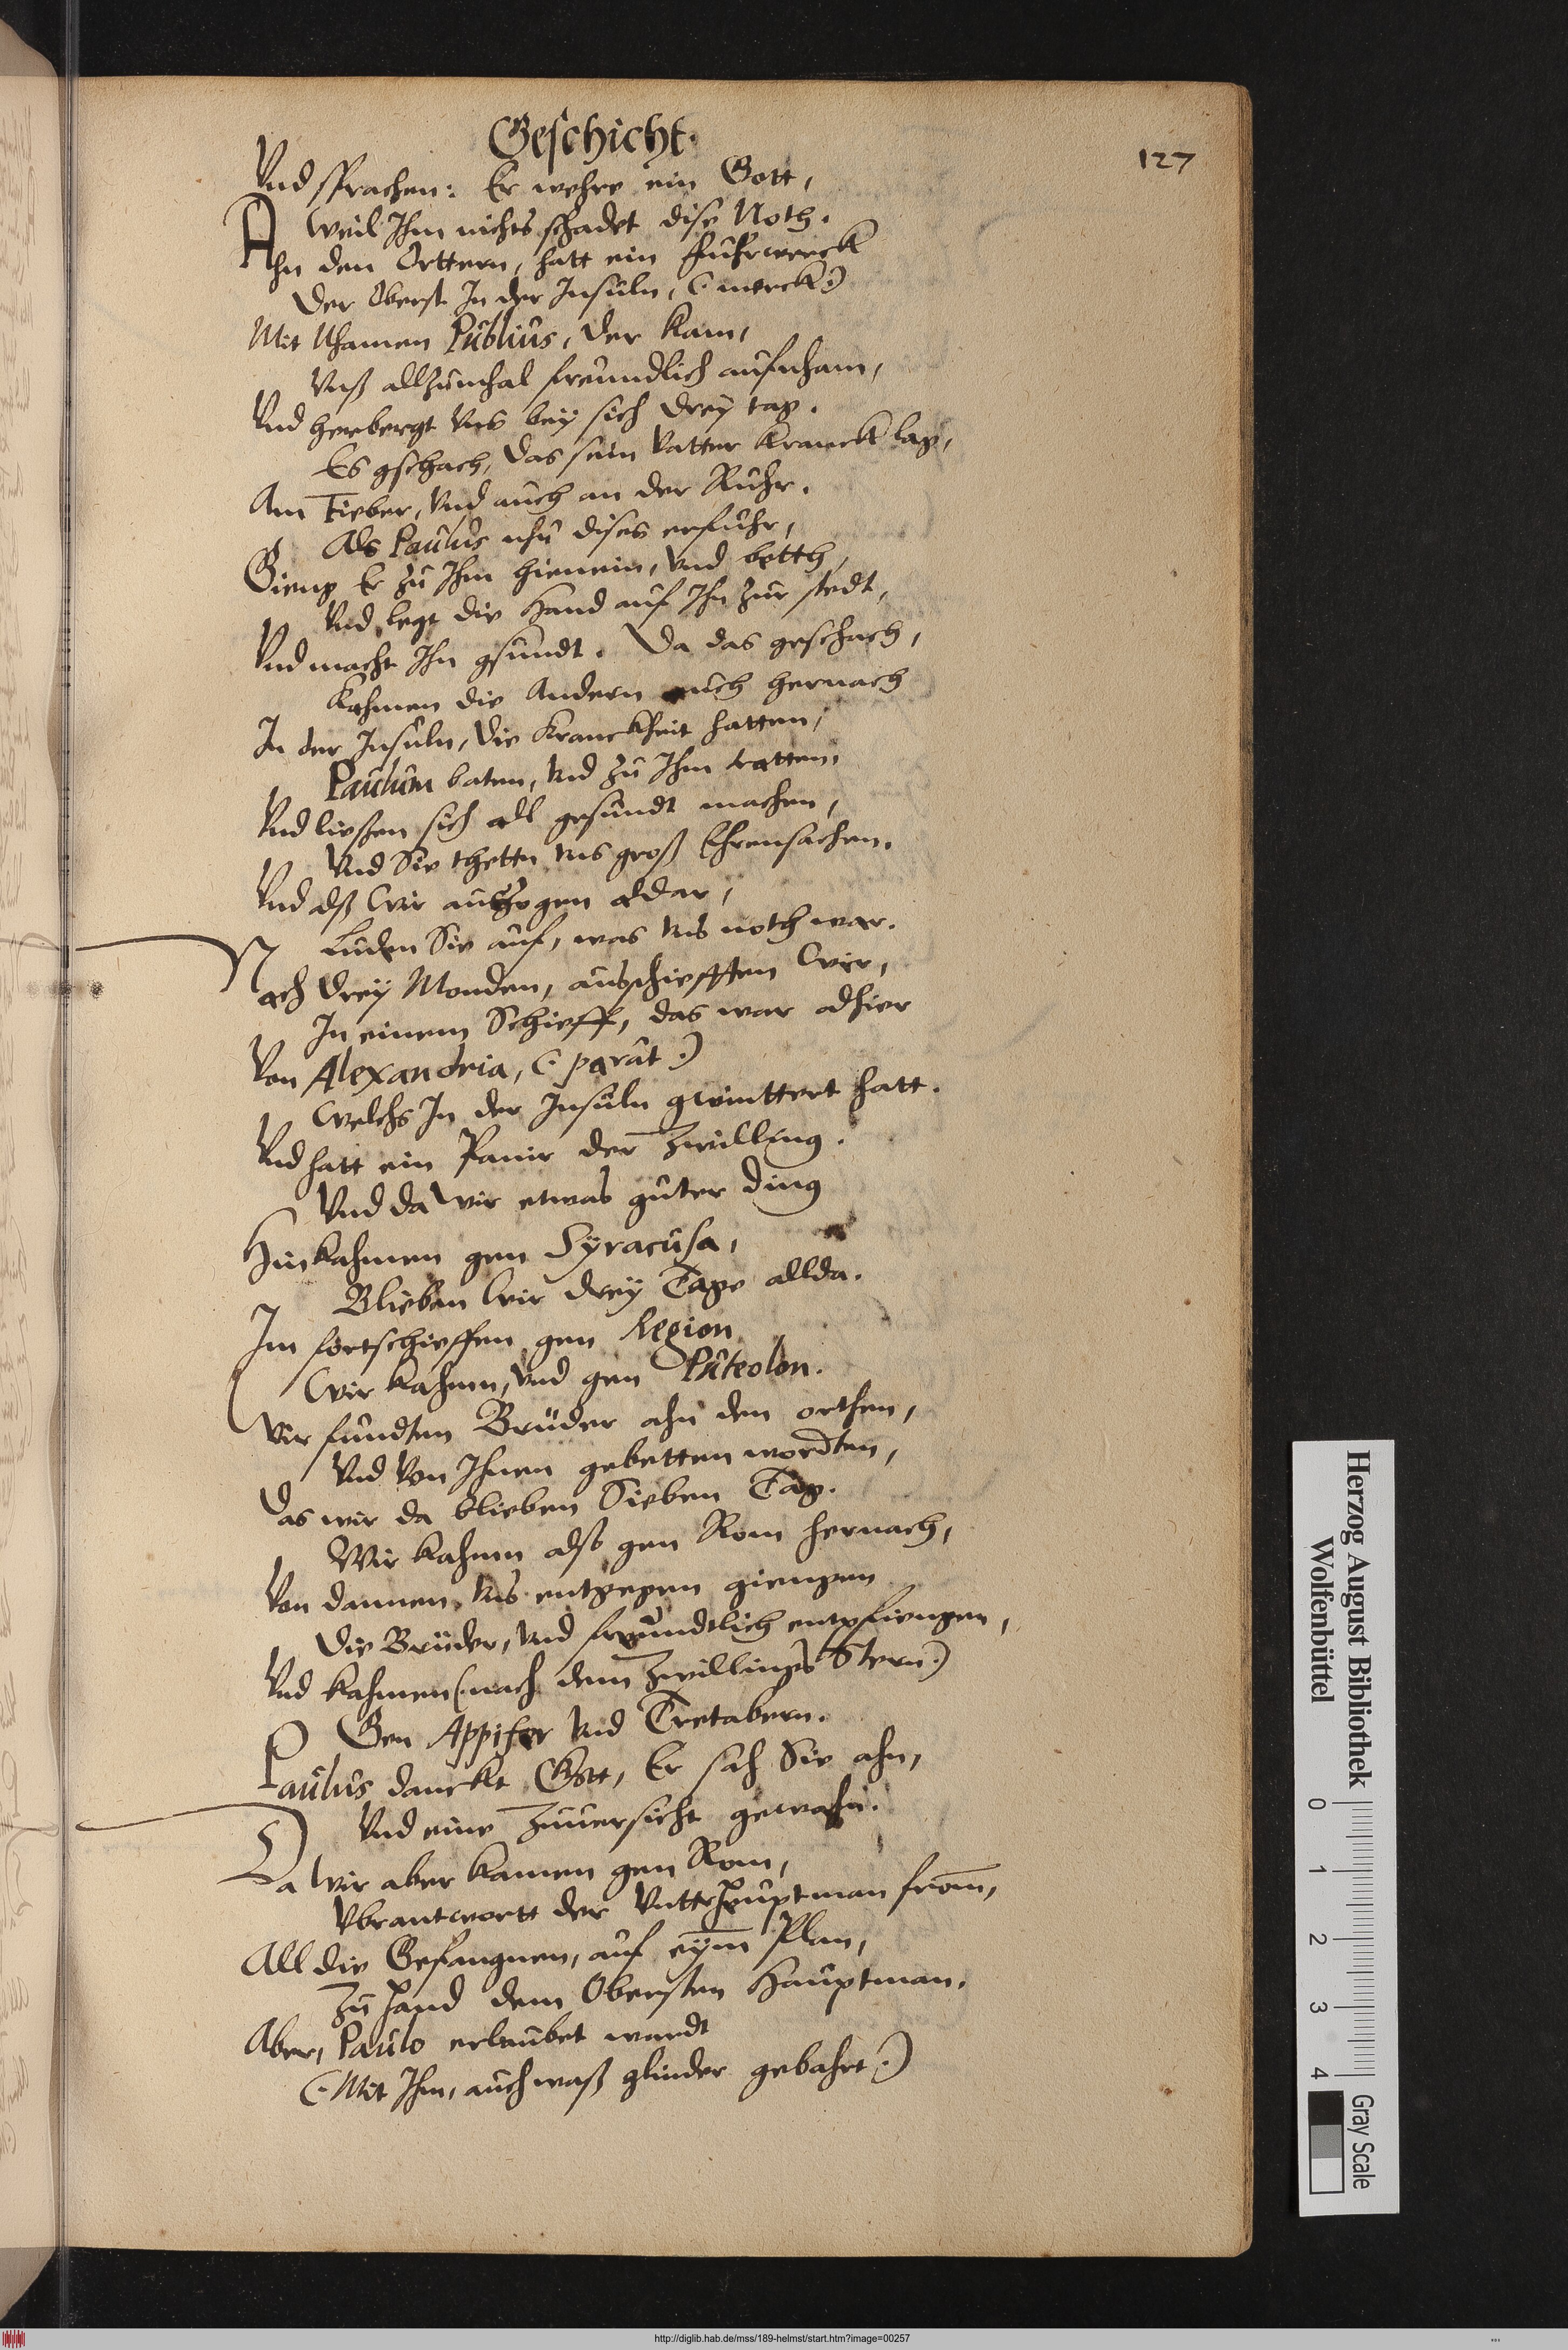 Geschicht.
127
Vnd sprachen: Er wehre ein Gott,
Weil Ihm nichts schadet dise Noth.
Ahn den Orttern, hatt ein fuhrwerck
Der Oberst In der Insuln, (: merck:)
Mit Nhamen Publius, der kam,
Vnß allzumhal freundlich aufnham,
Vnd herbergt Vns bey sich drey tag.
Es gschach, das sein Vatter kranck lag,
Am Fieber, Vnd auch an der Ruhr.
Als Paulus nhu dises erfuhr,
Gieng Er zu Ihm hienein, Vnd betth,
Vnd legt die Hand auf Ihn zur stedt,
Vnd macht Ihn gsundt. Da das geschach,
Kahmen die Andern auch hernach
In der Insuln, die Kranckheit hatten,
Paulum baten, Vnd zu Ihm tratten,
Vnd ließen sich all gesundt machen,
Vnd Sie thettn Vns groß Ehrensachen.
Vnd alß Wir außzogen aldar,
Luden Sie auf, was Vns noth war.
Nach drey Monden, ausschiefften Wir,
In einem Schieff, das war alhier
Von Alexandria, (: parat:)
Welchs In der Insuln gwinttert hatt.
Vnd hatt ein Panir der Zwilling.
Vnd da Wir etwas guter ding
Hin kahmen gen Syracusa,
Blieben Wir drey Tage allda.
Im fortschieffen gen Region
Wir kahmen, Vnd gen Puteolon.
Wir fundten Brüder ahn den orthen,
Vnd Von Ihnen gebetten wordten,
Das wir da blieben Sieben Tag.
Wir kahmen also gen Rom hernach,
Von dannen, Vns entgegen giengen
Die Brüder, Vnd freundtlich entpfiengen,
Vnd kahmen (: nach dem Zwillings Stern:)
Gen Appifer Vnd Tretabern.
Paulus danckt Gott, Er sah Sie ahn,
Vnd eine Zuuersicht gewahn.
Da Wir aber kamen gen Rom,
Vbrantwortt der Vntterhauptman from,
All die Gefangnen, auf eym Plan,
Zu Hand dem Obersten Hauptman.
Aber, Paulo erlaubet wardt
(: Mit Ihm, auch waß glinder gebahrt:)
Herzog August Bibliothek
Wolfenbüttel
0 1 2 3 4
Gray Scale
http://diglib.hab.de/mss/189-helmst/start.htm?image=00257